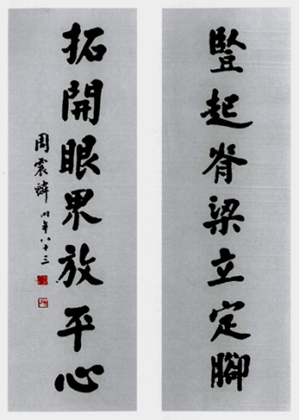 豎起脊梁立定腳
拓開眼界放平心
周震鱗 时年八十三